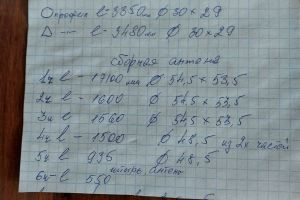 профиль l-3350мм ⌀ 30×29
Δ -"- l-3480мм ⌀ 30×29
сборная антена
1ч l - 1700мм ⌀ 54,5×53,5
2ч l - 1600 ⌀ 54,5×53,5
3ч l - 1560 ⌀ 54,5×53,5
4ч l - 1500 ⌀ 48,5 из 2х частей
5ч l 935 ⌀ 48,5
6ч-l 550 штырь, антена